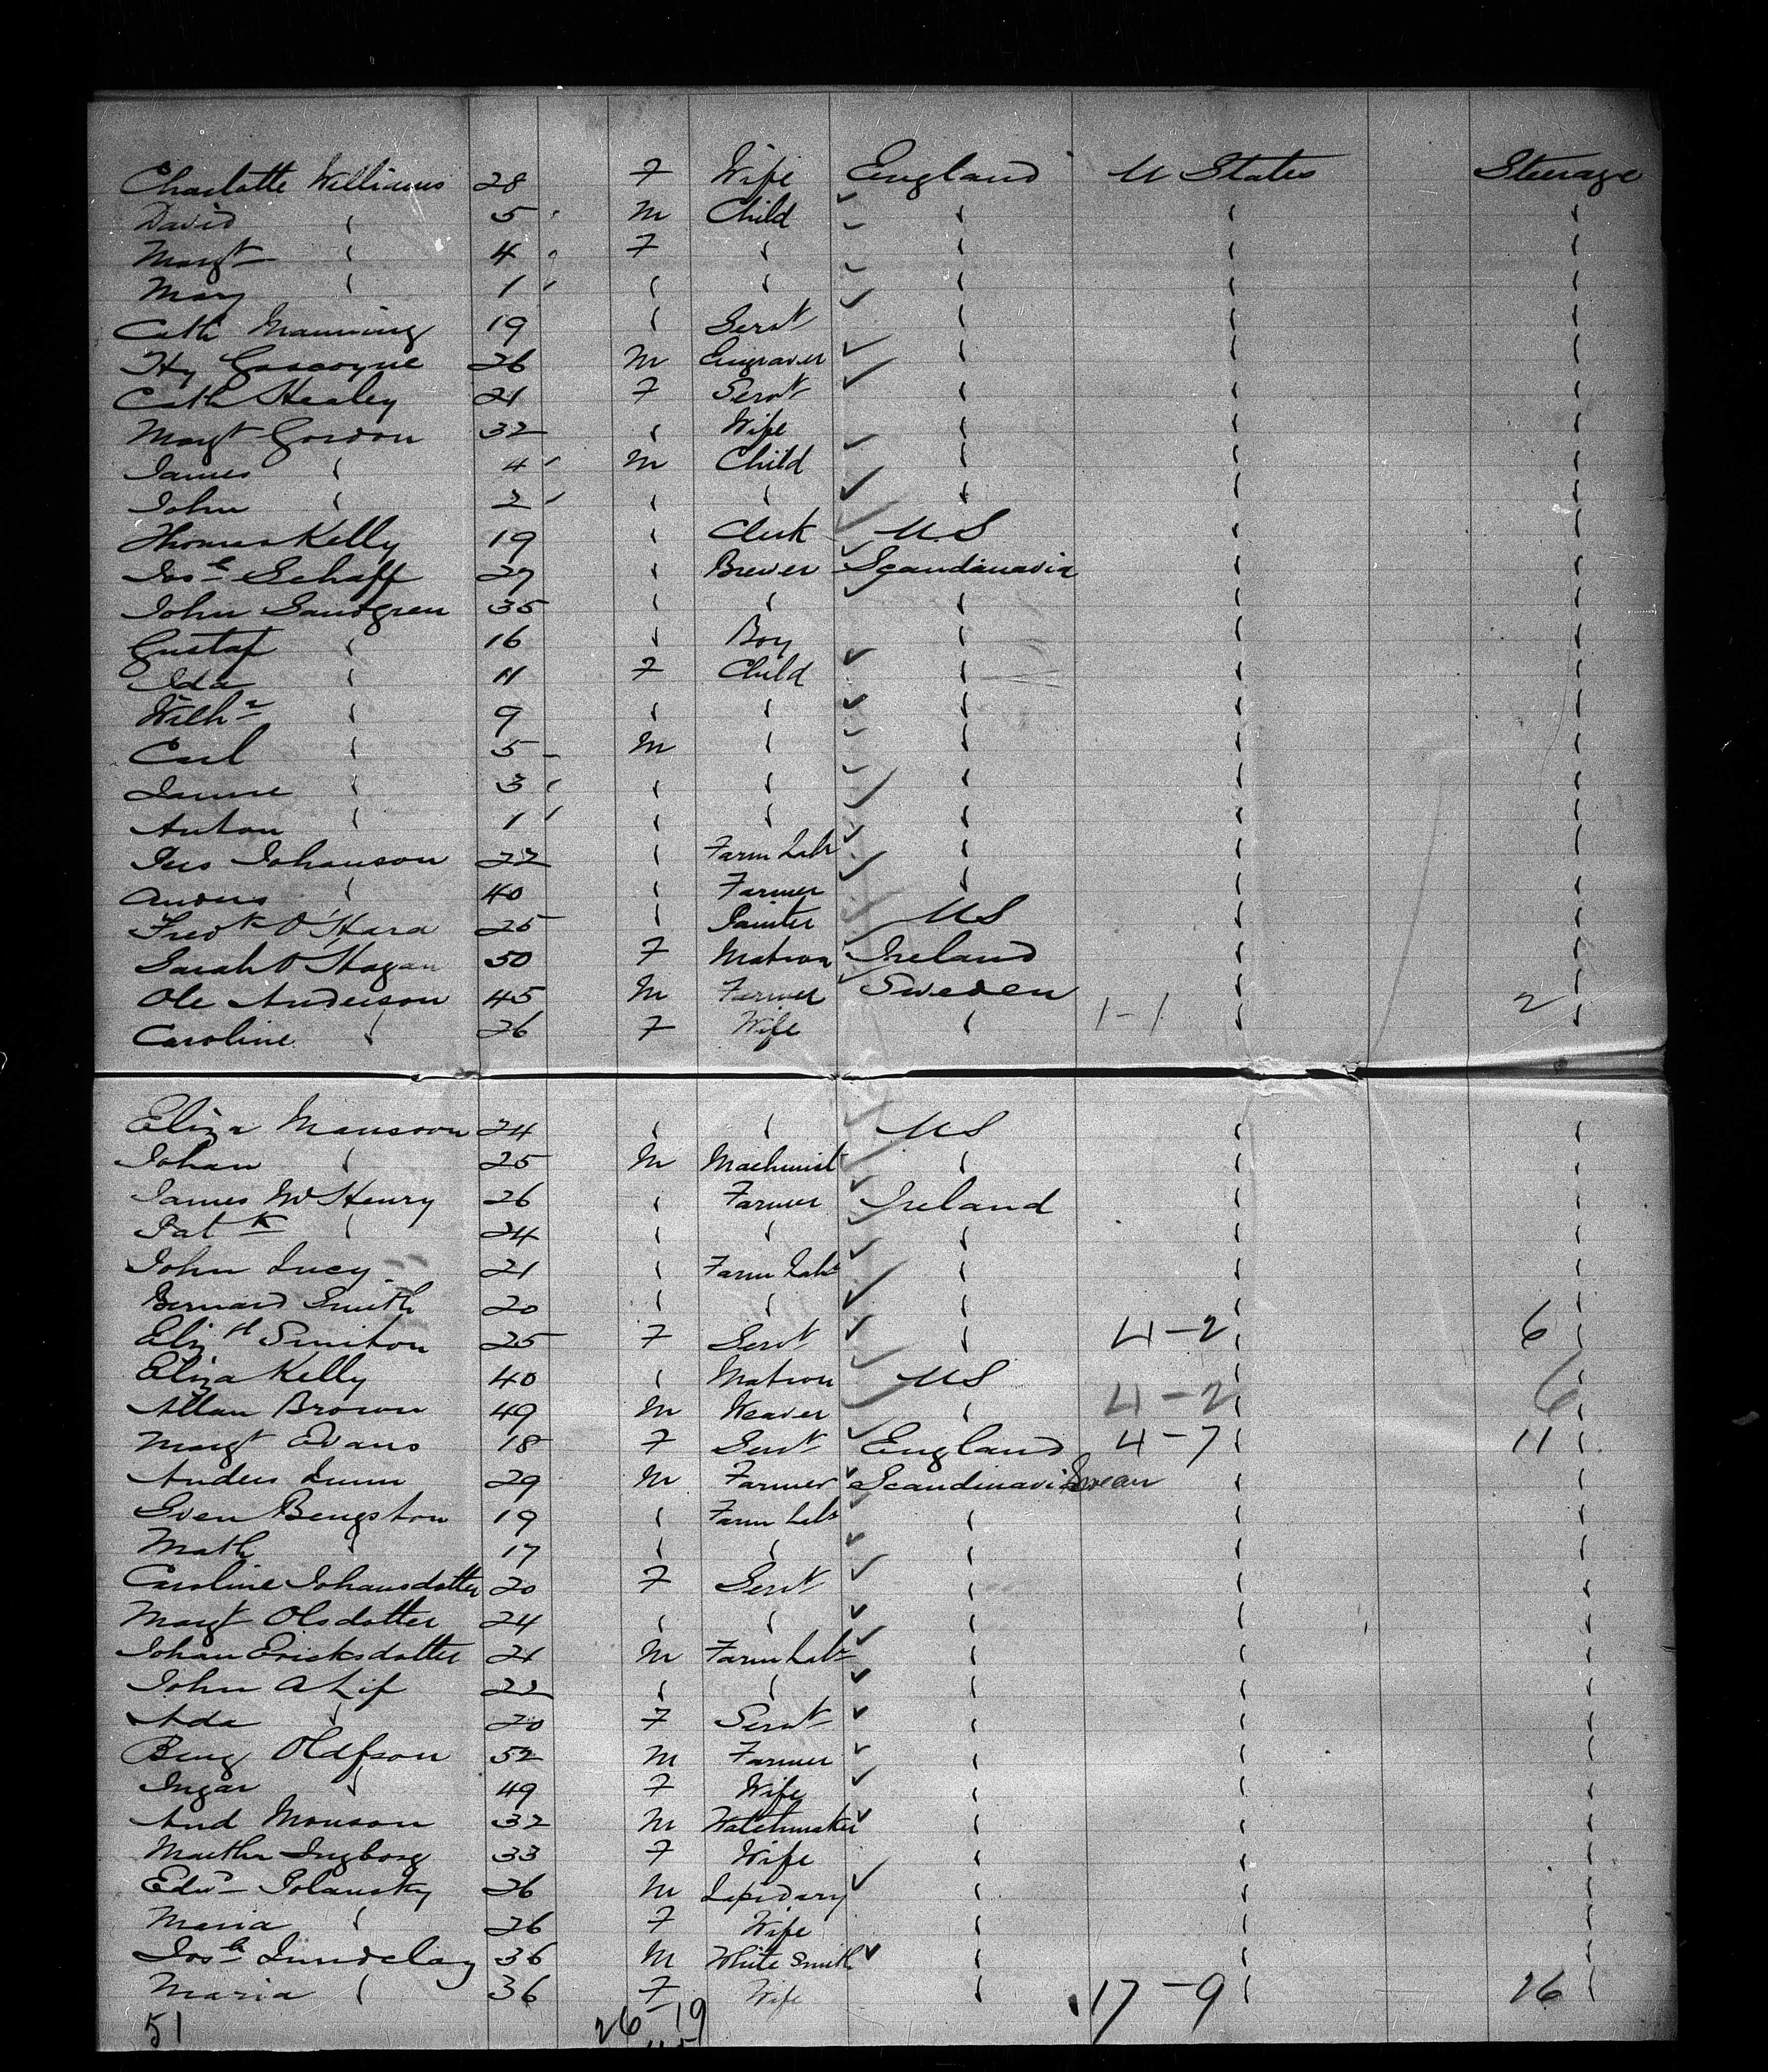 Charlotte Williams 28 F Wife England U States Steerage
David " 5 M Child " " "
Margt " 4 F " " " "
Mary " 1 " " " " "
Cath Manning 19 " Servt " " "
Hy Gascoyne 26 M Engraver " " "
Cath Healey 21 F Servt " " "
Margt Gordon 32 " Wife " " "
James " 4 M Child " " "
John " 2 " " " " "
Thomas Kelly 19 " Clerk US " "
Josh Schaff 27 " Brewer Scandinavia " "
John Sandgren 35 " " " " "
Gustaf " 16 " Boy " " "
Ida " 11 F Child " " "
Wilhr " 9 " " " " "
Carl " 5 M " " " "
Janne " 3 " " " " "
Anton " 1 " " " " "
Pers Johanson 22 " Farm Labr " " "
Anders " 40 " Farmer " " "
Fredk O'Hara 25 " Painter US " "
Sarah O'Hagan 50 F Matron Ireland " "
Ole Anderson 45 M Farmer Sweden 1-1 " 2 "
Caroline " 26 F Wife "
Eliza Mansson 24 " " US " "
Johan " 25 M Machinist " " "
James McHenry 26 " Farmer Ireland " "
Patk " 24 " " " " "
John Lucy 21 " Farm Labr " " "
Bernard Smith 20 " " " " "
Elizth Sinton 25 F Servt " 4-2 " 6 "
Eliza Kelly 40 " Matron US " "
Allan Brown 49 M Weaver " 4-2 " 6 "
Margt Evans 18 F Servt England 4-7 " 11 "
Anders Lunn 29 M Farmer Scandinavia Swean " "
Sven Bengston 19 " Farm Labr " " "
Math " 17 " " " " "
Caroline Johansdotter 20 F Servt " " "
Margt Olsdotter 24 " " " " "
Johan Ericksdotter 21 M Farm Labr " " "
John A Lif 22 " " " " "
Ada " 20 F Servt " " "
Beng Oldfson 52 M Farmer " " "
Ingar " 49 F Wife " " "
And Monson 32 M Watchmaker " " "
Martha Ingborg 33 F Wife " " "
Edwd Polansky 26 M Lapidary " " "
Maria " 26 F Wife " " "
Josh Lundelay 36 M White Smith " " "
Maria " 36 F Wife " 17-9 " 26 "
51 26 19